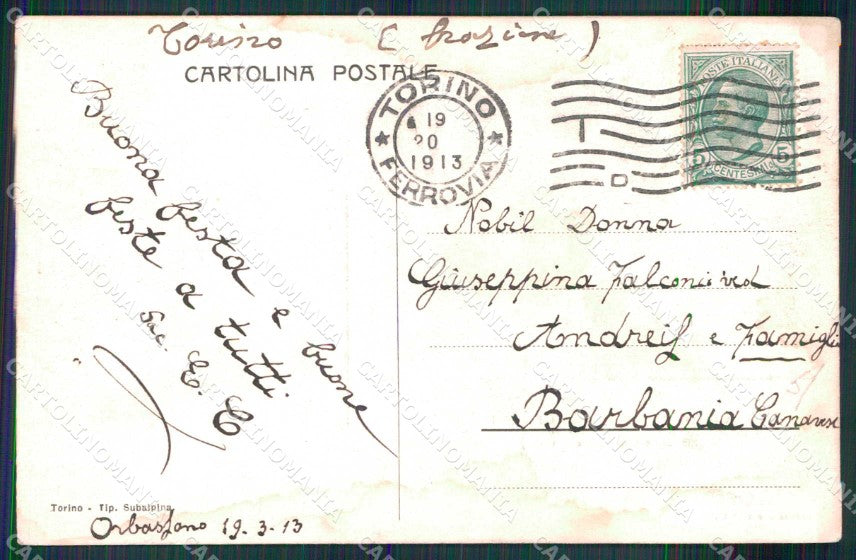 Torino ( frazione )
CARTOLINA POSTALE
TORINO
19
20
1913
FERROVIA
POSTE ITALIANE
5 5
CENTESIMI
Buona festa e buone
feste a tutti
Sac. E. C
Nobil Donna
Giuseppina Falconi ved
Andreis e Famigli
Barbania Canavese
Torino - Tip. Subalpina.
Orbassano 19-3-13
CARTOLINOMANIA